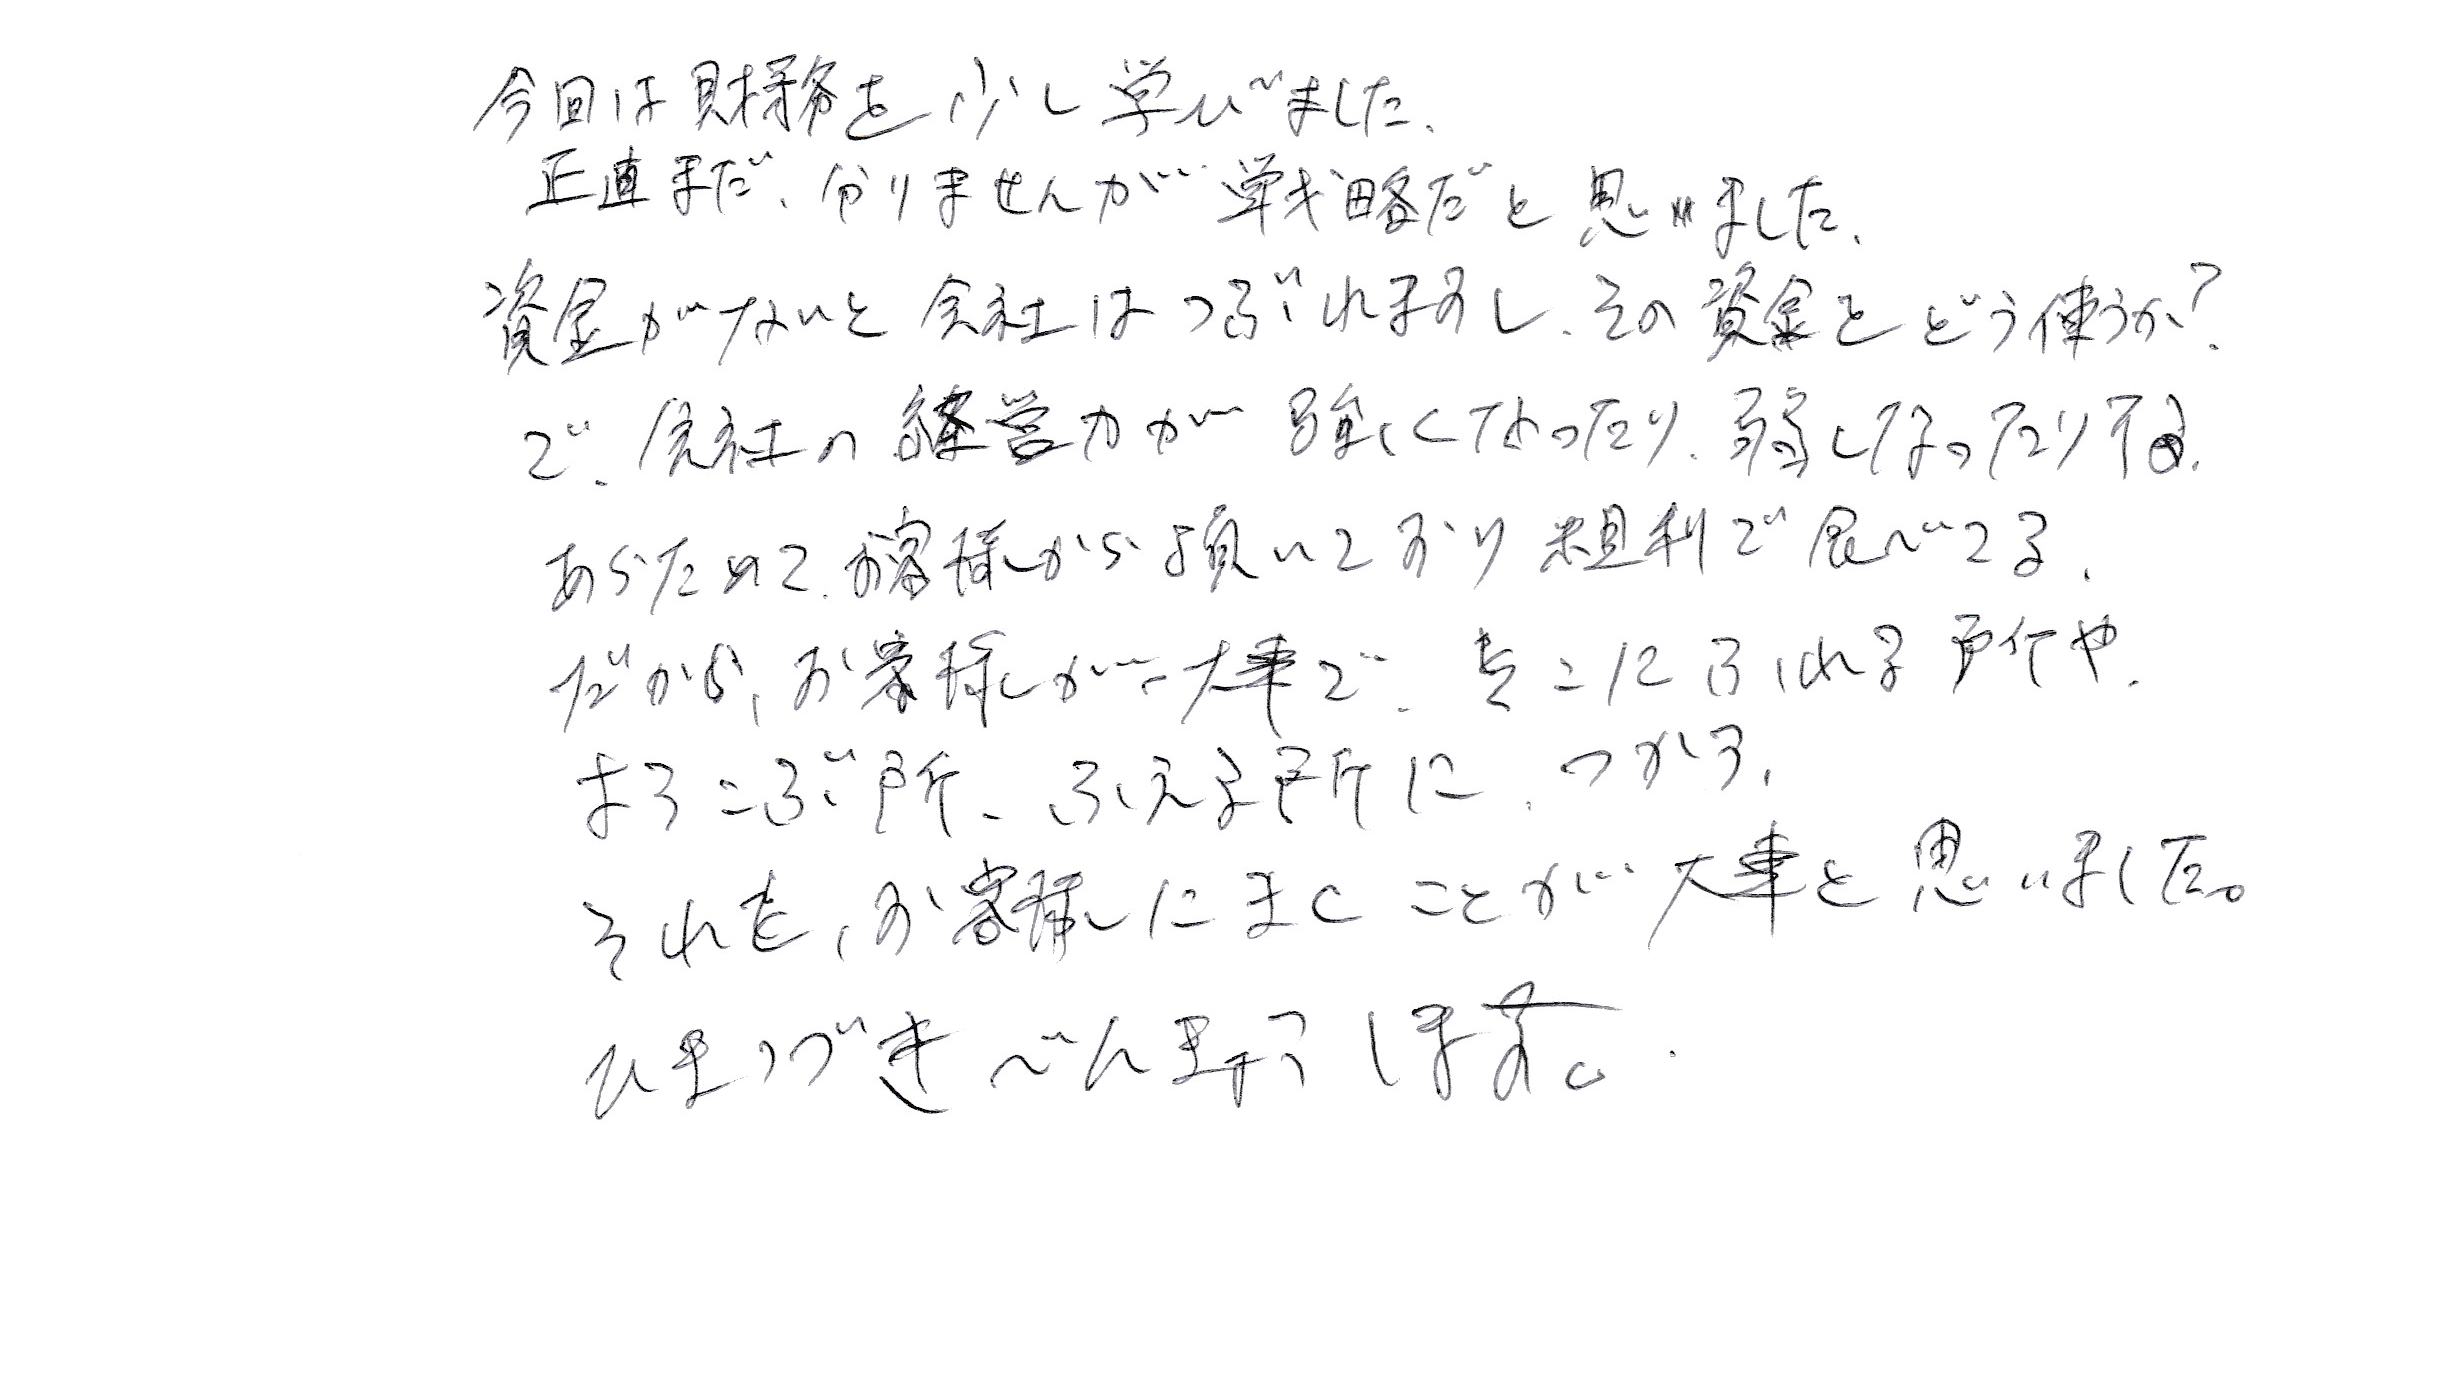 今回は財務を少し学びました.
正直まだ、分りませんが戦略だと思いました.
資金がないと会社はつぶれますし、その資金をどう使うか?
で、会社の経営力が強くなったり、弱くなったりする.
あらためて、お客様から頂いており粗利で食べてる.
だから、お客様が大事で、そこにふれる所や、
よろこぶ所、ふえる所に、つかう.
それを、お客様にまくことが大事と思いました。
ひきつづきべんきょうします。